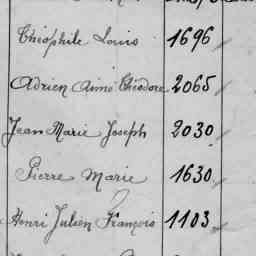 Théophile Louis 1696
Adrien Aimé Théodore 2065
Jean Marie Joseph 2030
Pierre Marie 1630
Henri Julien François 1103